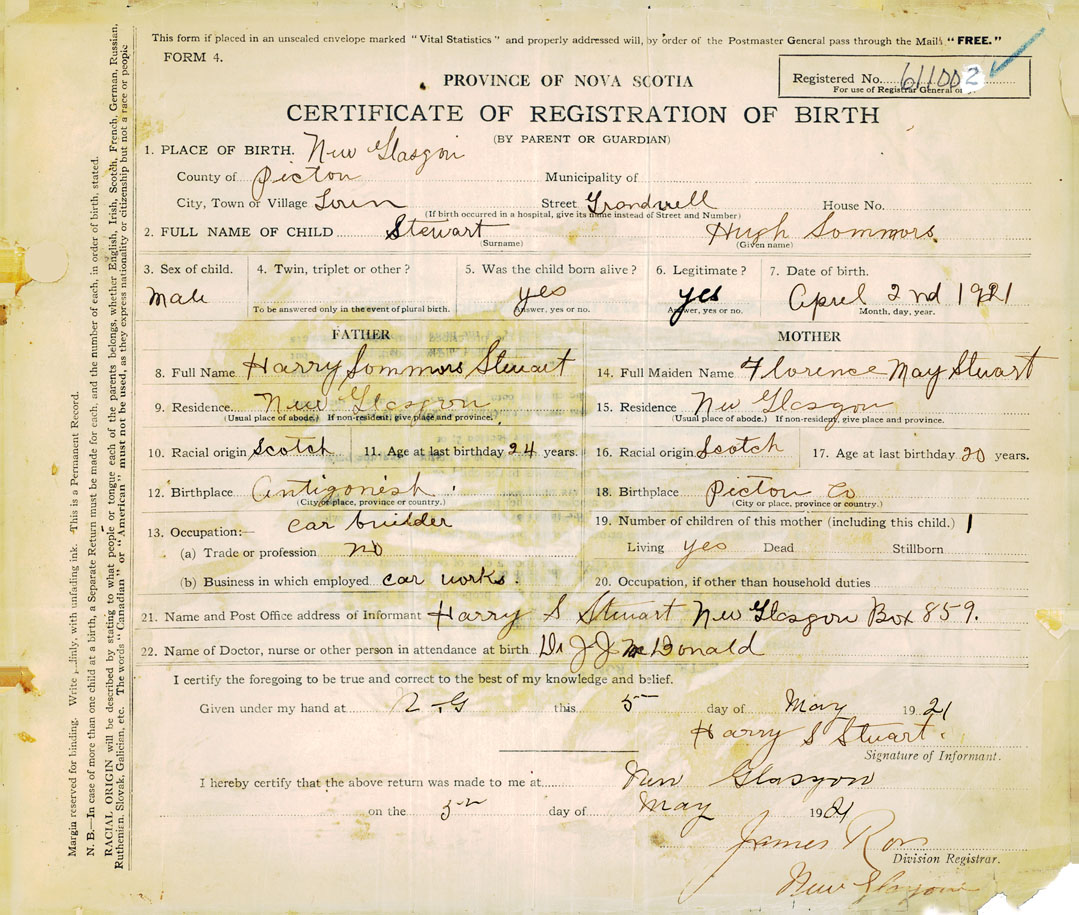 This form if placed in an unsealed envelope marked "Vital Statistics" and properly addressed will, by order of the Postmaster General pass through the Mails "FREE."
FORM 4.
Registered No. 611002
For use of Registrar General only.
PROVINCE OF NOVA SCOTIA
CERTIFICATE OF REGISTRATION OF BIRTH
(BY PARENT OR GUARDIAN)
1. PLACE OF BIRTH. New Glasgow
County of Picton Municipality of
City, Town or Village Town Street House No.
(If birth occurred in a hospital, give its name instead of Street and Number)
2. FULL NAME OF CHILD Stewart Hugh Sommors
(Surname) (Given name)
3. Sex of child. 4. Twin, triplet or other? 5. Was the child born alive? 6. Legitimate? 7. Date of birth.
Male yes yes April 2nd 1921
To be answered only in the event of plural birth. Answer, yes or no. Answer, yes or no. Month, day, year.
FATHER MOTHER
8. Full Name Harry Sommors Stewart 14. Full Maiden Name Florence May Stuart
9. Residence. New Glasgow 15. Residence New Glasgow
(Usual place of abode.) If non-resident, give place and province. (Usual place of abode.) If non-resident, give place and province.
10. Racial origin Scotch 11. Age at last birthday 24 years. 16. Racial origin Scotch 17. Age at last birthday 20 years.
12. Birthplace Antigonish 18. Birthplace Picton Co
(City or place, province or country.) (City or place, province or country.)
13. Occupation:- car builder 19. Number of children of this mother (including this child.) 1
(a) Trade or profession no Living yes Dead Stillborn
(b) Business in which employed car works. 20. Occupation, if other than household duties
21. Name and Post Office address of Informant Harry S Stuart New Glasgow Box 859.
22. Name of Doctor, nurse or other person in attendance at birth Dr J J McDonald
I certify the foregoing to be true and correct to the best of my knowledge and belief.
Given under my hand at N. G this 5 day of May 1921
Harry S Stuart.
Signature of Informant.
I hereby certify that the above return was made to me at New Glasgow
on the 5 day of May 1921
James Ross
Division Registrar.
New Glasgow
Margin reserved for binding. Write plainly, with unfading ink. This is a Permanent Record.
N. B.—In case of more than one child at a birth, a Separate Return must be made for each, and the number of each, in order of birth, stated.
RACIAL ORIGIN will be described by stating to what people or tongue each of the parents belongs, whether English, Irish, Scotch, French, German, Russian,
Ruthenian, Slovak, Galician, etc. The words "Canadian" or "American" must not be used, as they express nationality or citizenship but not a race or people